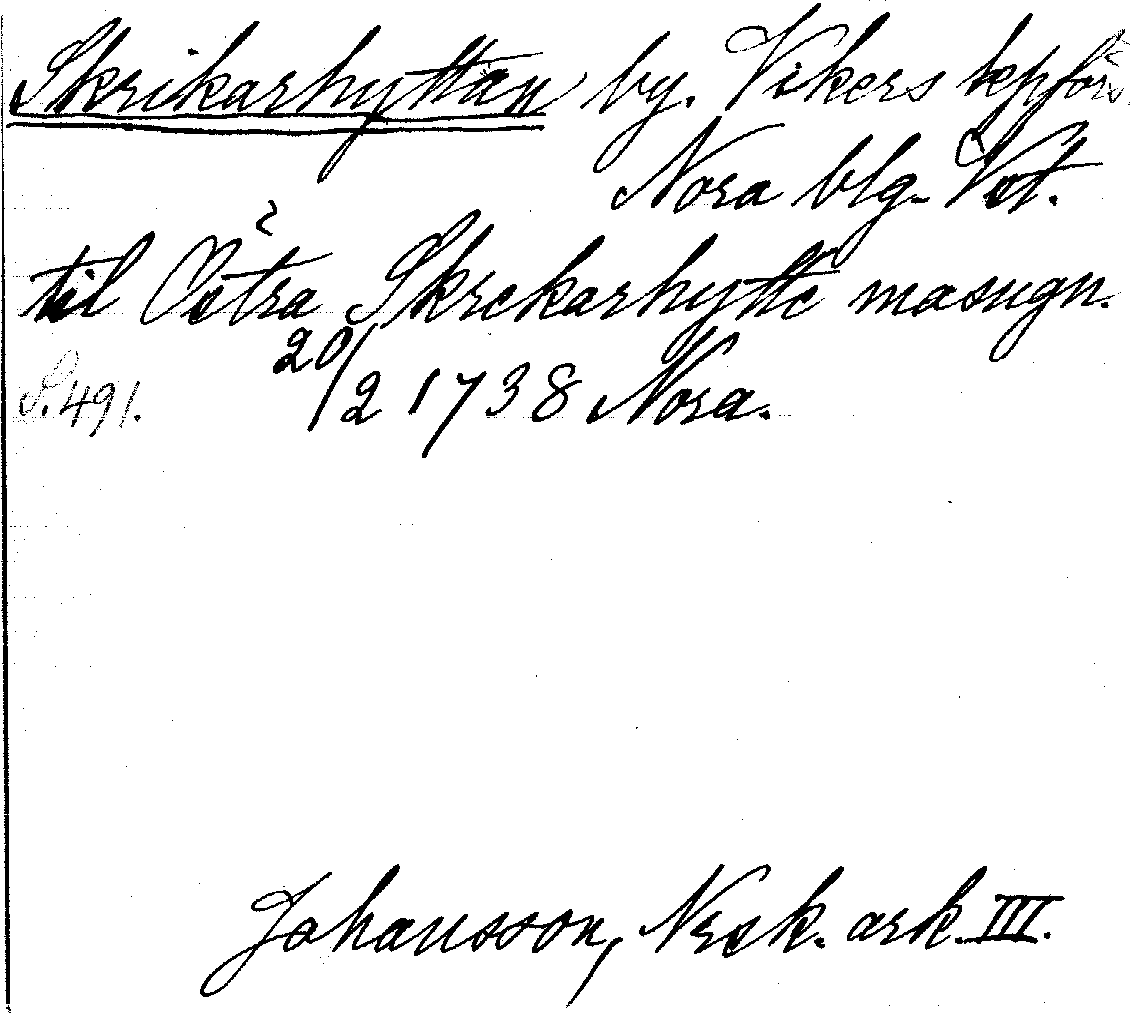 Skrikarhyttan by. Vikers kpförs.
Nora blg. Vst.
til Östra Skrekarhytte masugn.
S. 491. 20/2 1738 Nora.
Johansson, Neck. ark. III.